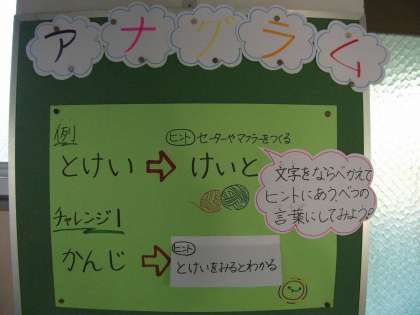 アナグラム
例1
ヒント セーターやマフラーをつくる
とけい ⇨ けいと
文字をならべかえて
ヒントにあうべつの
言葉にしてみよう。
チャレンジ1
ヒント
かんじ ⇨ とけいをみるとわかる